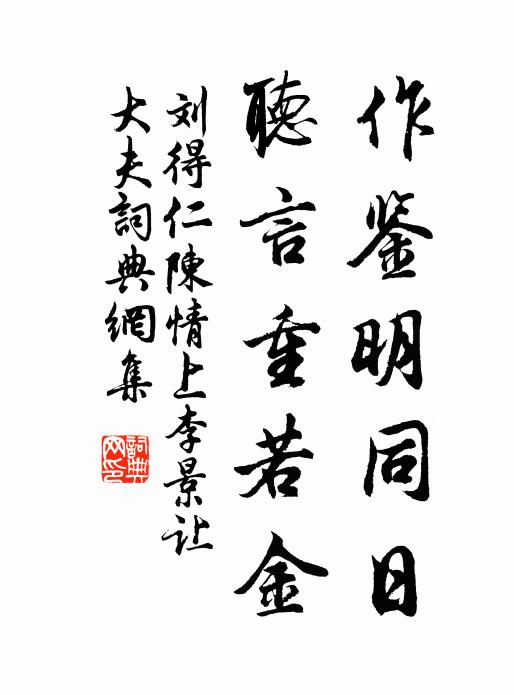 作鉴明同日
聽言重若金
刘得仁陳情上李景让
大夫詞典網集
詞典网印